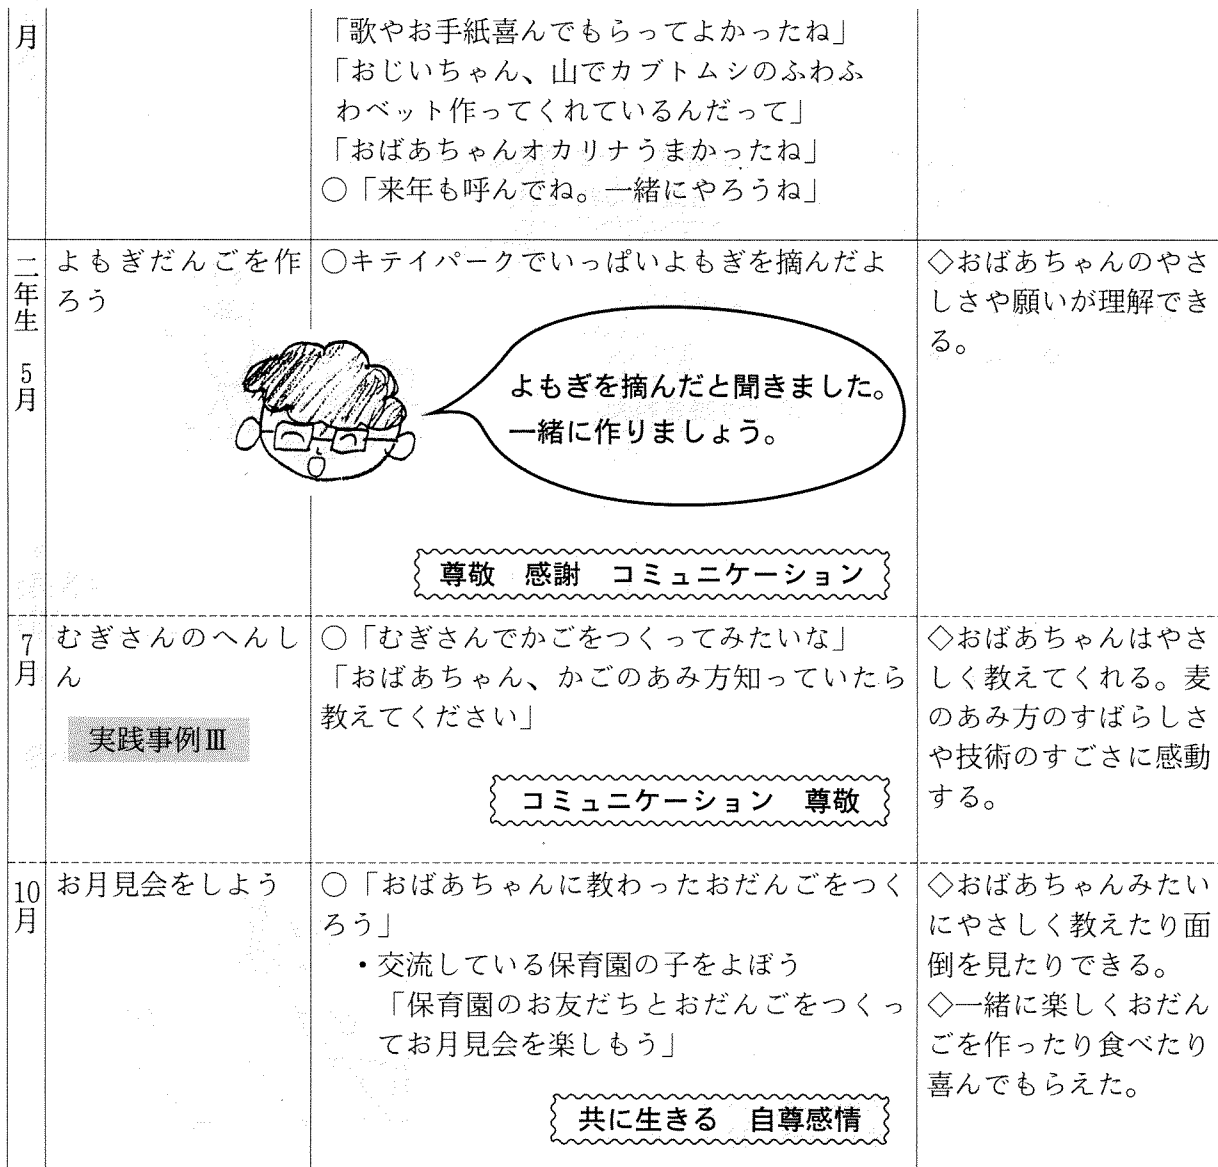 月
「歌やお手紙喜んでもらってよかったね」
「おじいちゃん、山でカブトムシのふわふ
わベット作ってくれているんだって」
「おばあちゃんオカリナうまかったね」
○「来年も呼んでね。一緒にやろうね」
二年生 5月
よもぎだんごを作
ろう
○キテイパークでいっぱいよもぎを摘んだよ
よもぎを摘んだと聞きました。
一緒に作りましょう。
尊敬 感謝 コミュニケーション
◇おばあちゃんのやさ
しさや願いが理解でき
る。
7月
むぎさんのへんし
ん
実践事例Ⅲ
○「むぎさんでかごをつくってみたいな」
「おばあちゃん、かごのあみ方知っていたら
教えてください」
コミュニケーション 尊敬
◇おばあちゃんはやさ
しく教えてくれる。麦
のあみ方のすばらしさ
や技術のすごさに感動
する。
10月
お月見会をしよう
○「おばあちゃんに教わったおだんごをつく
ろう」
・交流している保育園の子をよぼう
「保育園のお友だちとおだんごをつくっ
てお月見会を楽しもう」
共に生きる 自尊感情
◇おばあちゃんみたい
にやさしく教えたり面
倒を見たりできる。
◇一緒に楽しくおだん
ごを作ったり食べたり
喜んでもらえた。